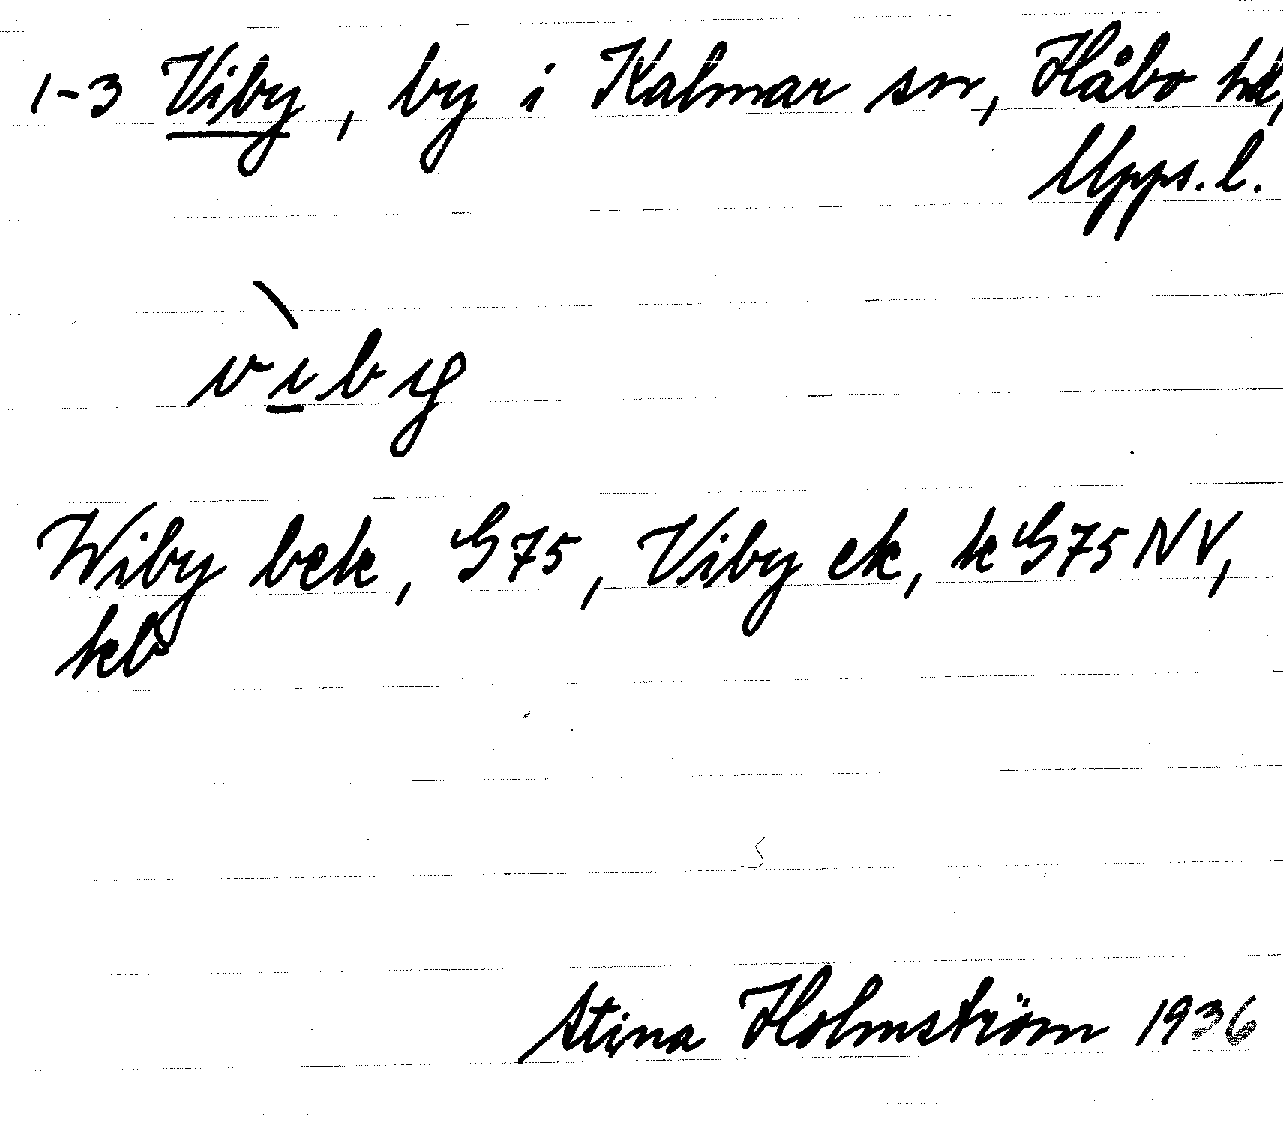 1-3 Viby, by i Kalmar sn, Håbo hd,
Upps. l.
vìby
Wiby bek, G75, Viby ek, k G75 NV,
kb
Stina Holmström 1936